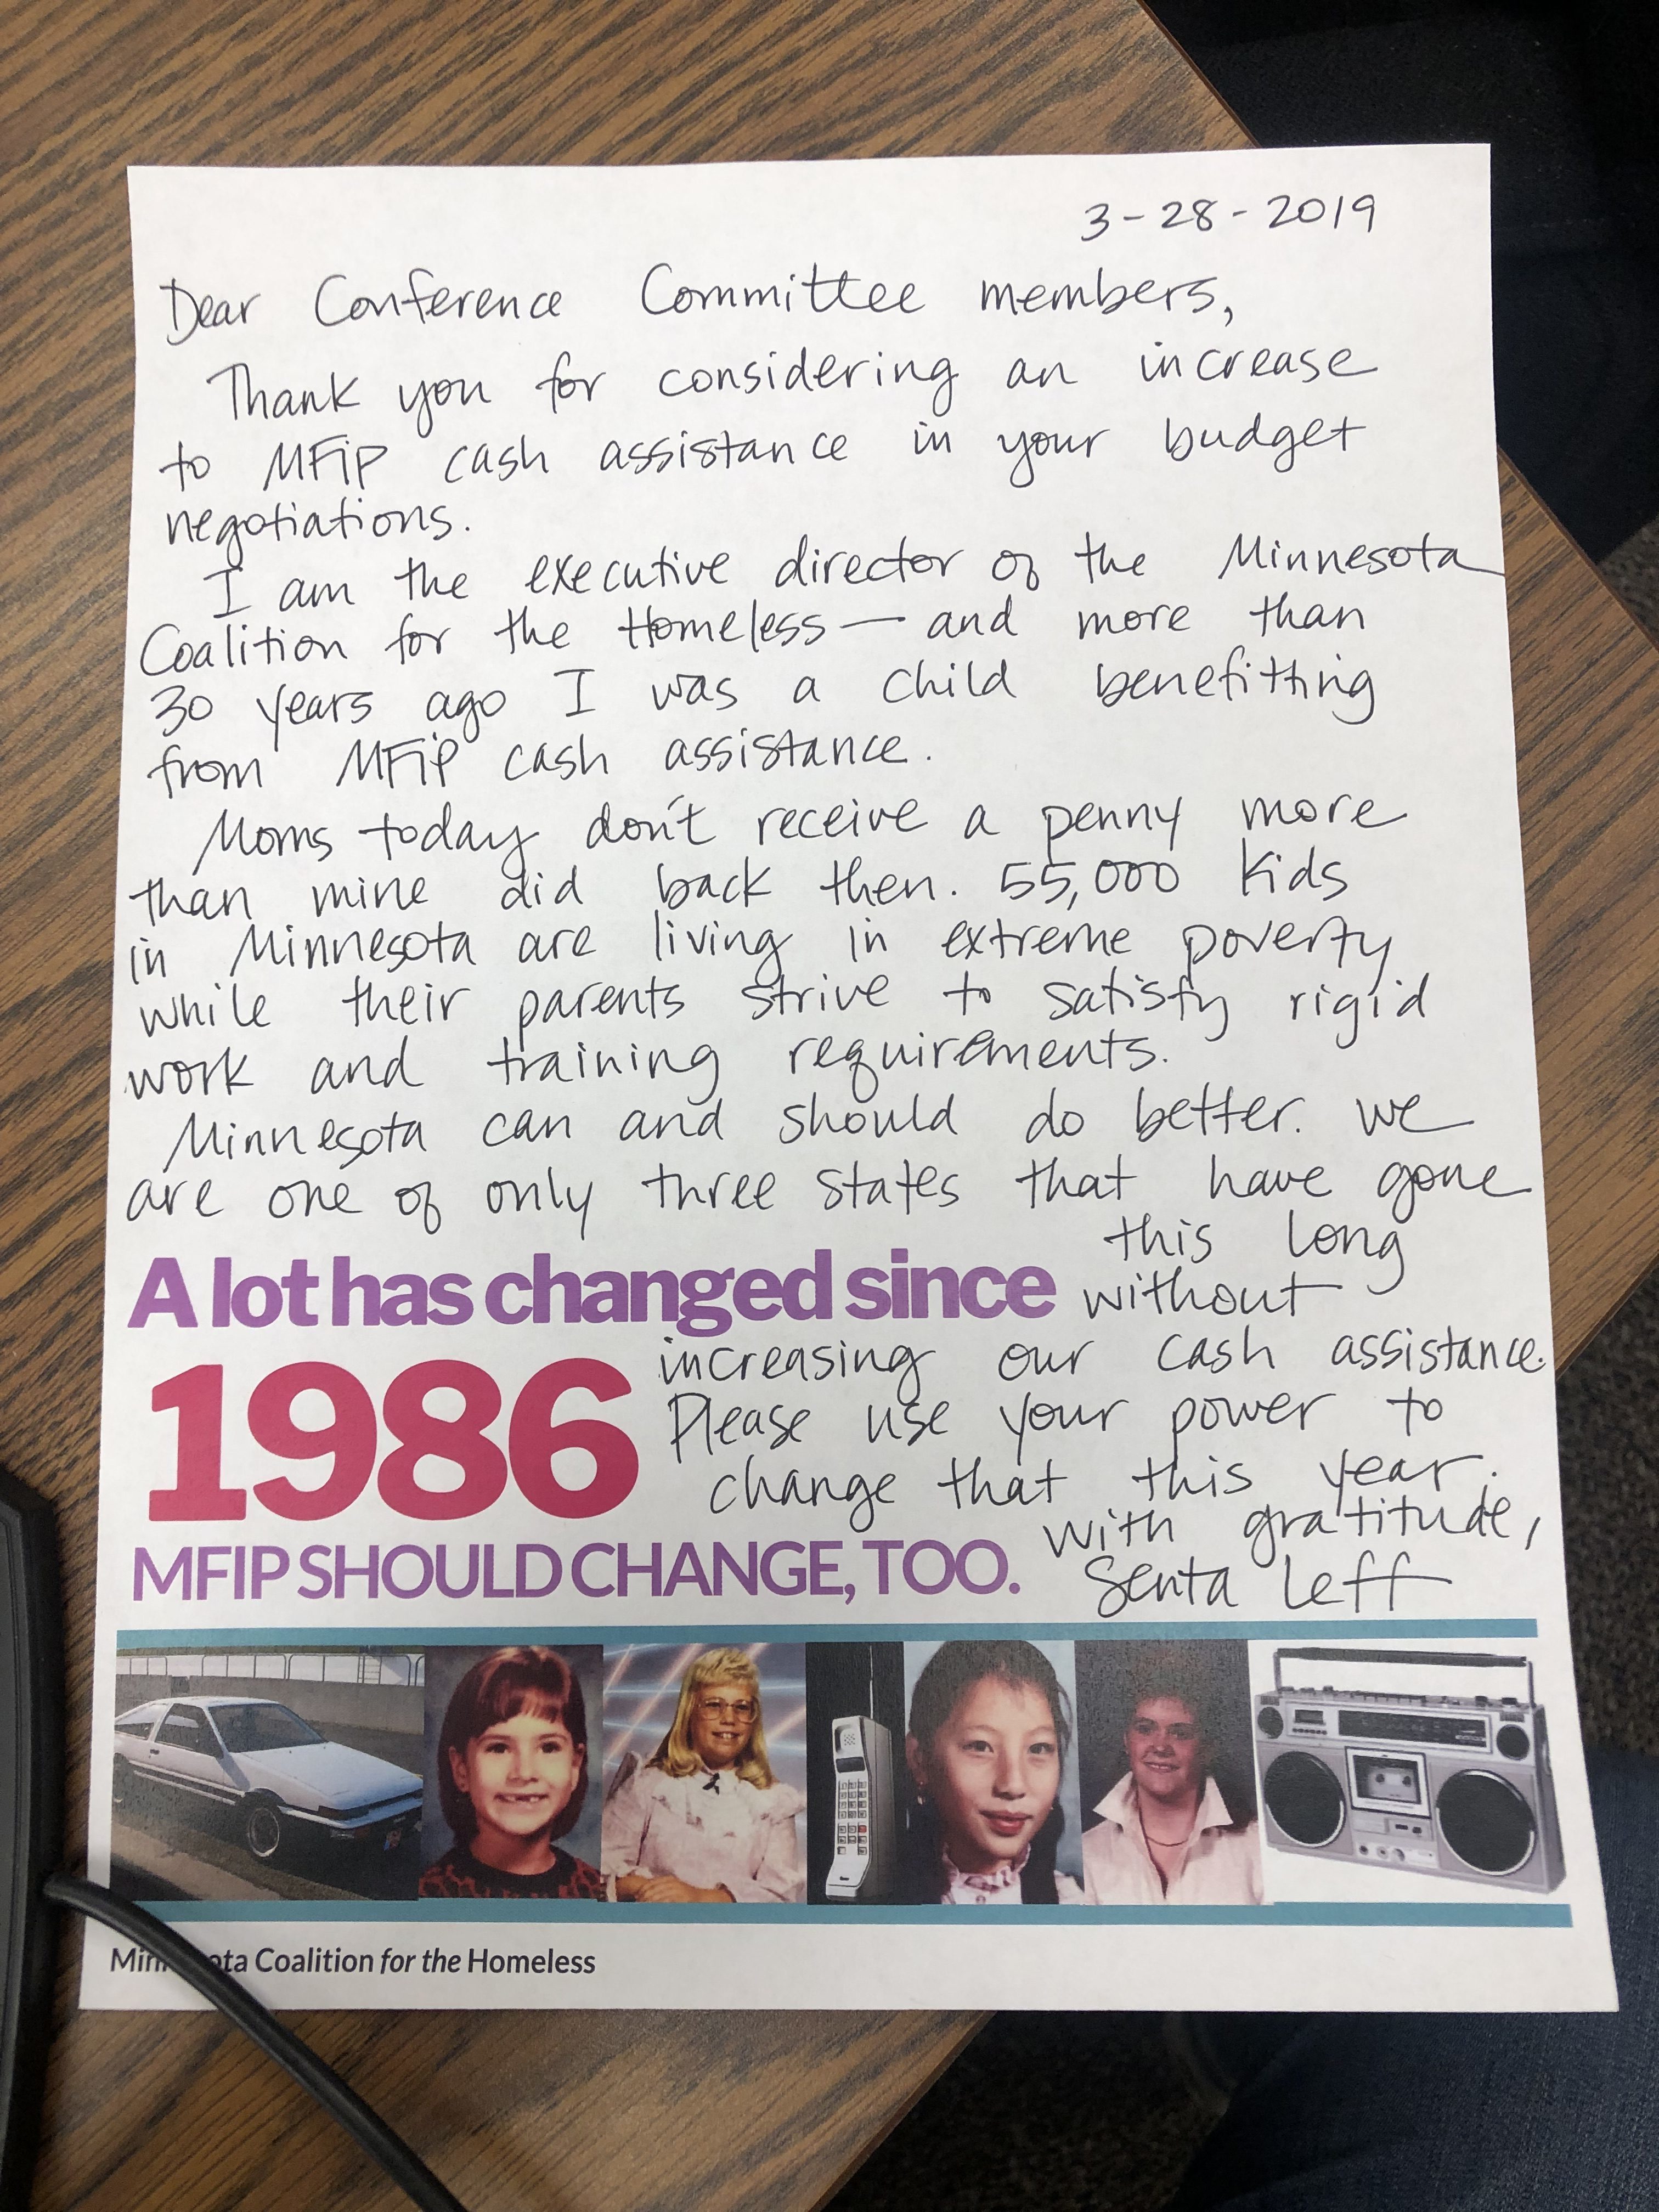 3-28-2019
Dear Conference Committee members,
Thank you for considering an increase
to MFIP cash assistance in your budget
negotiations.
I am the executive director of the Minnesota
Coalition for the Homeless — and more than
30 years ago I was a child benefitting
from MFIP cash assistance.
Moms today don't receive a penny more
than mine did back then. 55,000 kids
in Minnesota are living in extreme poverty
while their parents strive to satisfy rigid
work and training requirements.
Minnesota can and should do better. We
are one of only three states that have gone
this long
without
increasing our cash assistance.
Please use your power to
change that this year.
with gratitude,
Senta Leff
A lot has changed since
1986
MFIP SHOULD CHANGE, TOO.
Minnesota Coalition for the Homeless